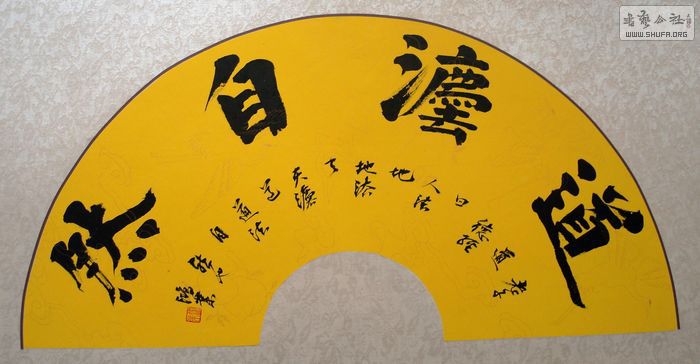 道灋自然
老子道德經曰人法地地法天天灋道道法自然
書藝公社
WWW.SHUFA.ORG